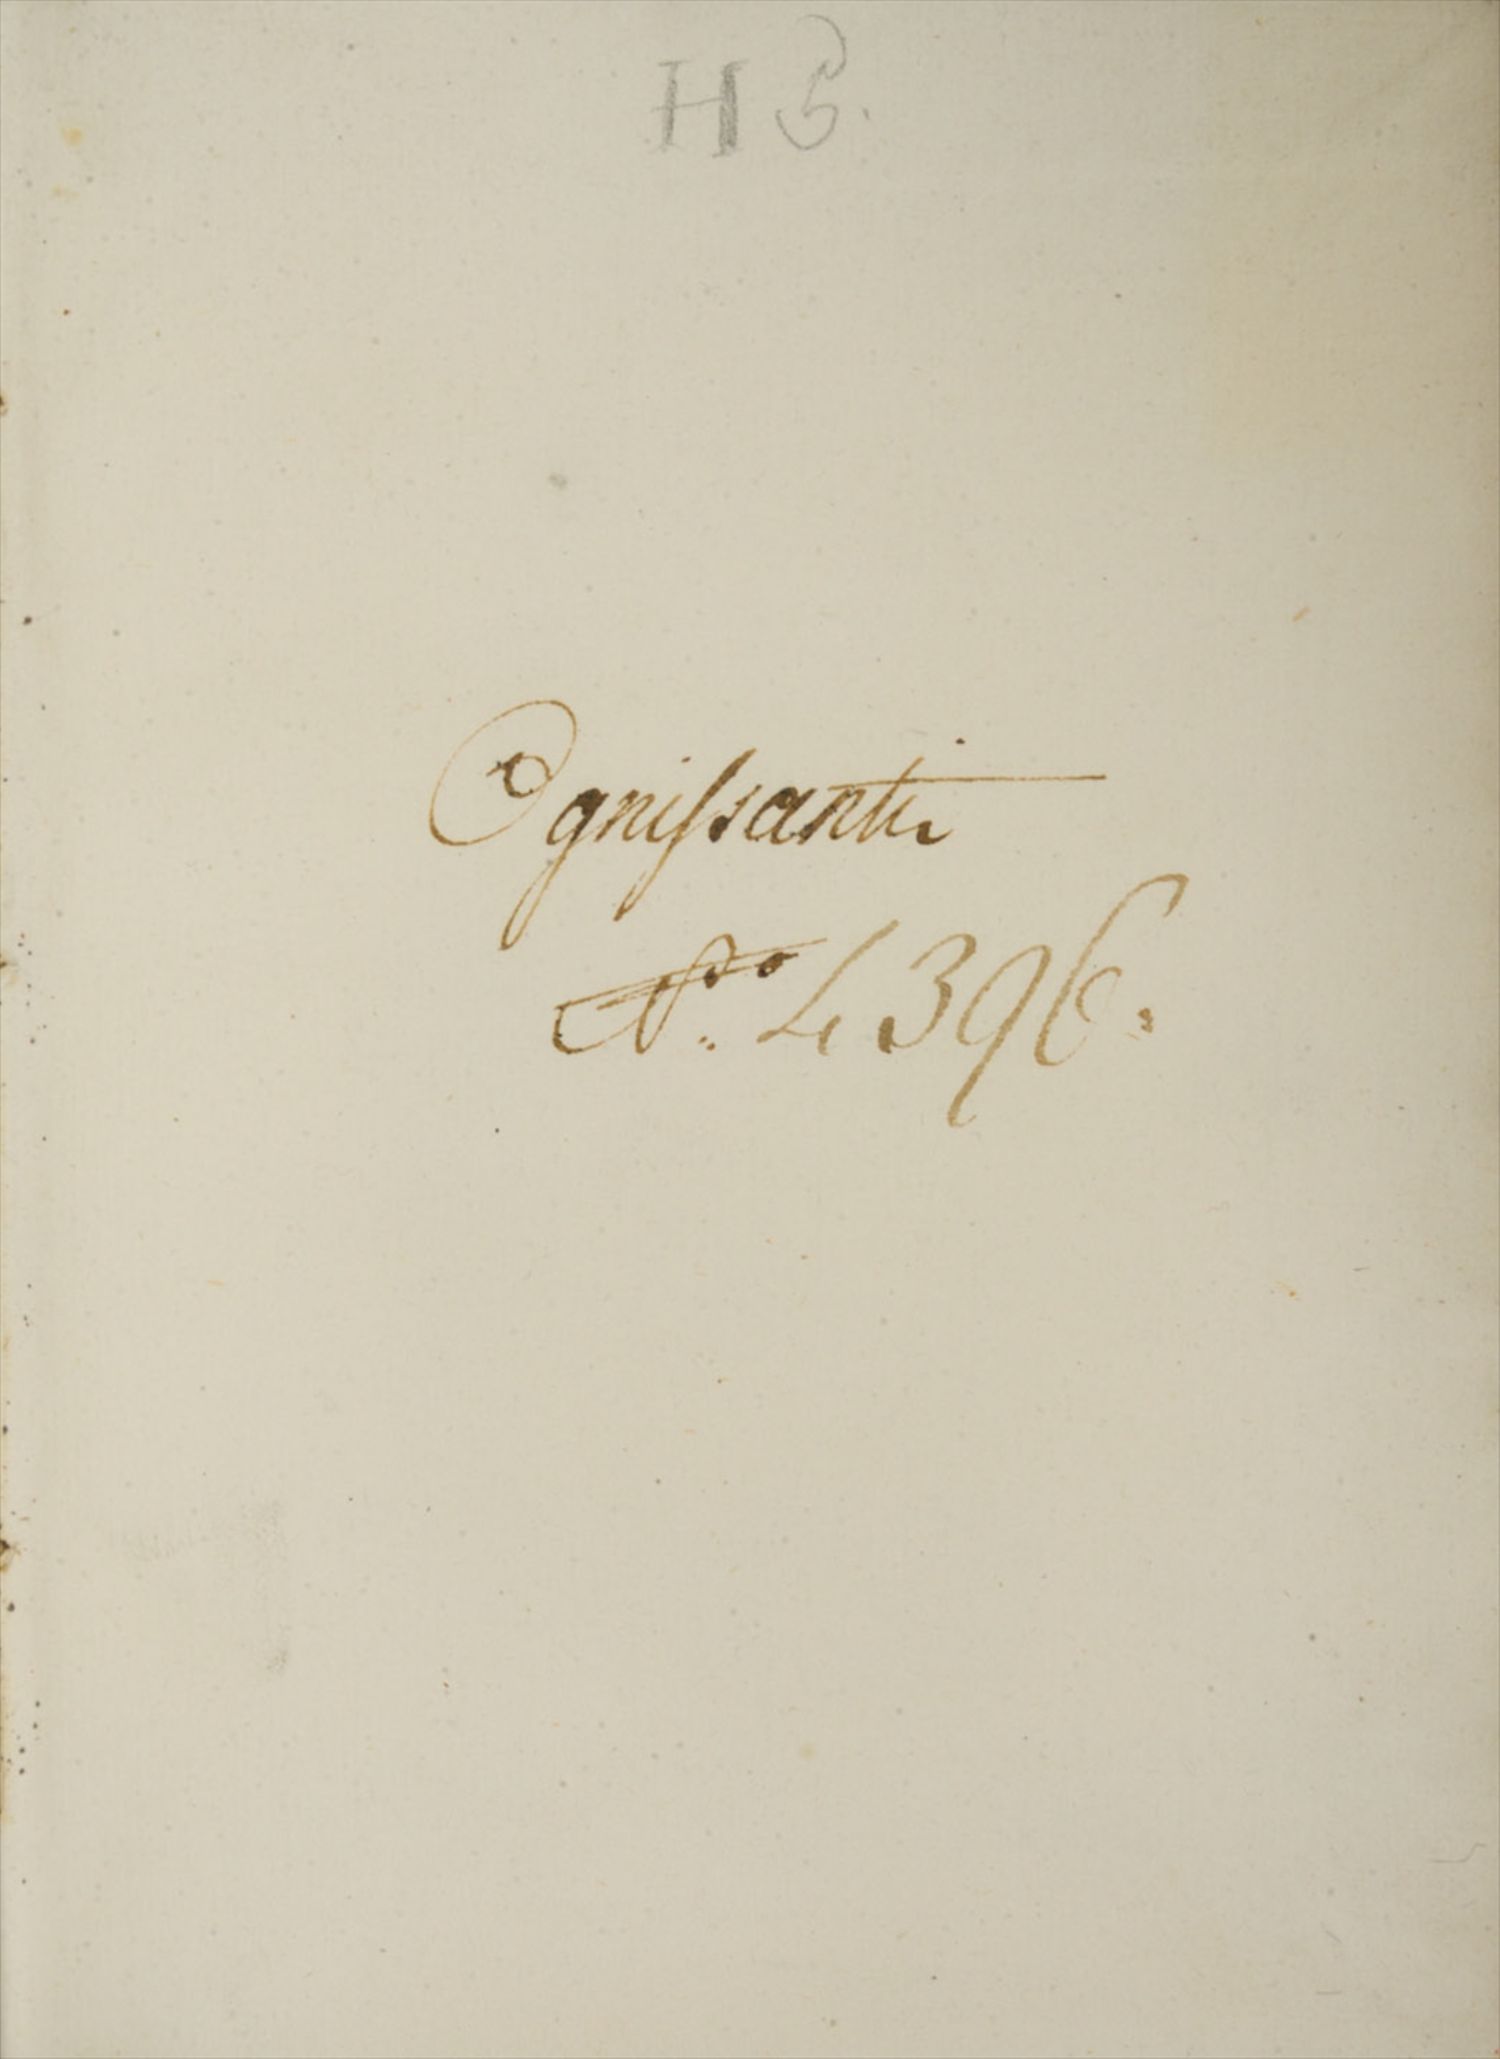 H 5.
Ognissanti
No. 4396.